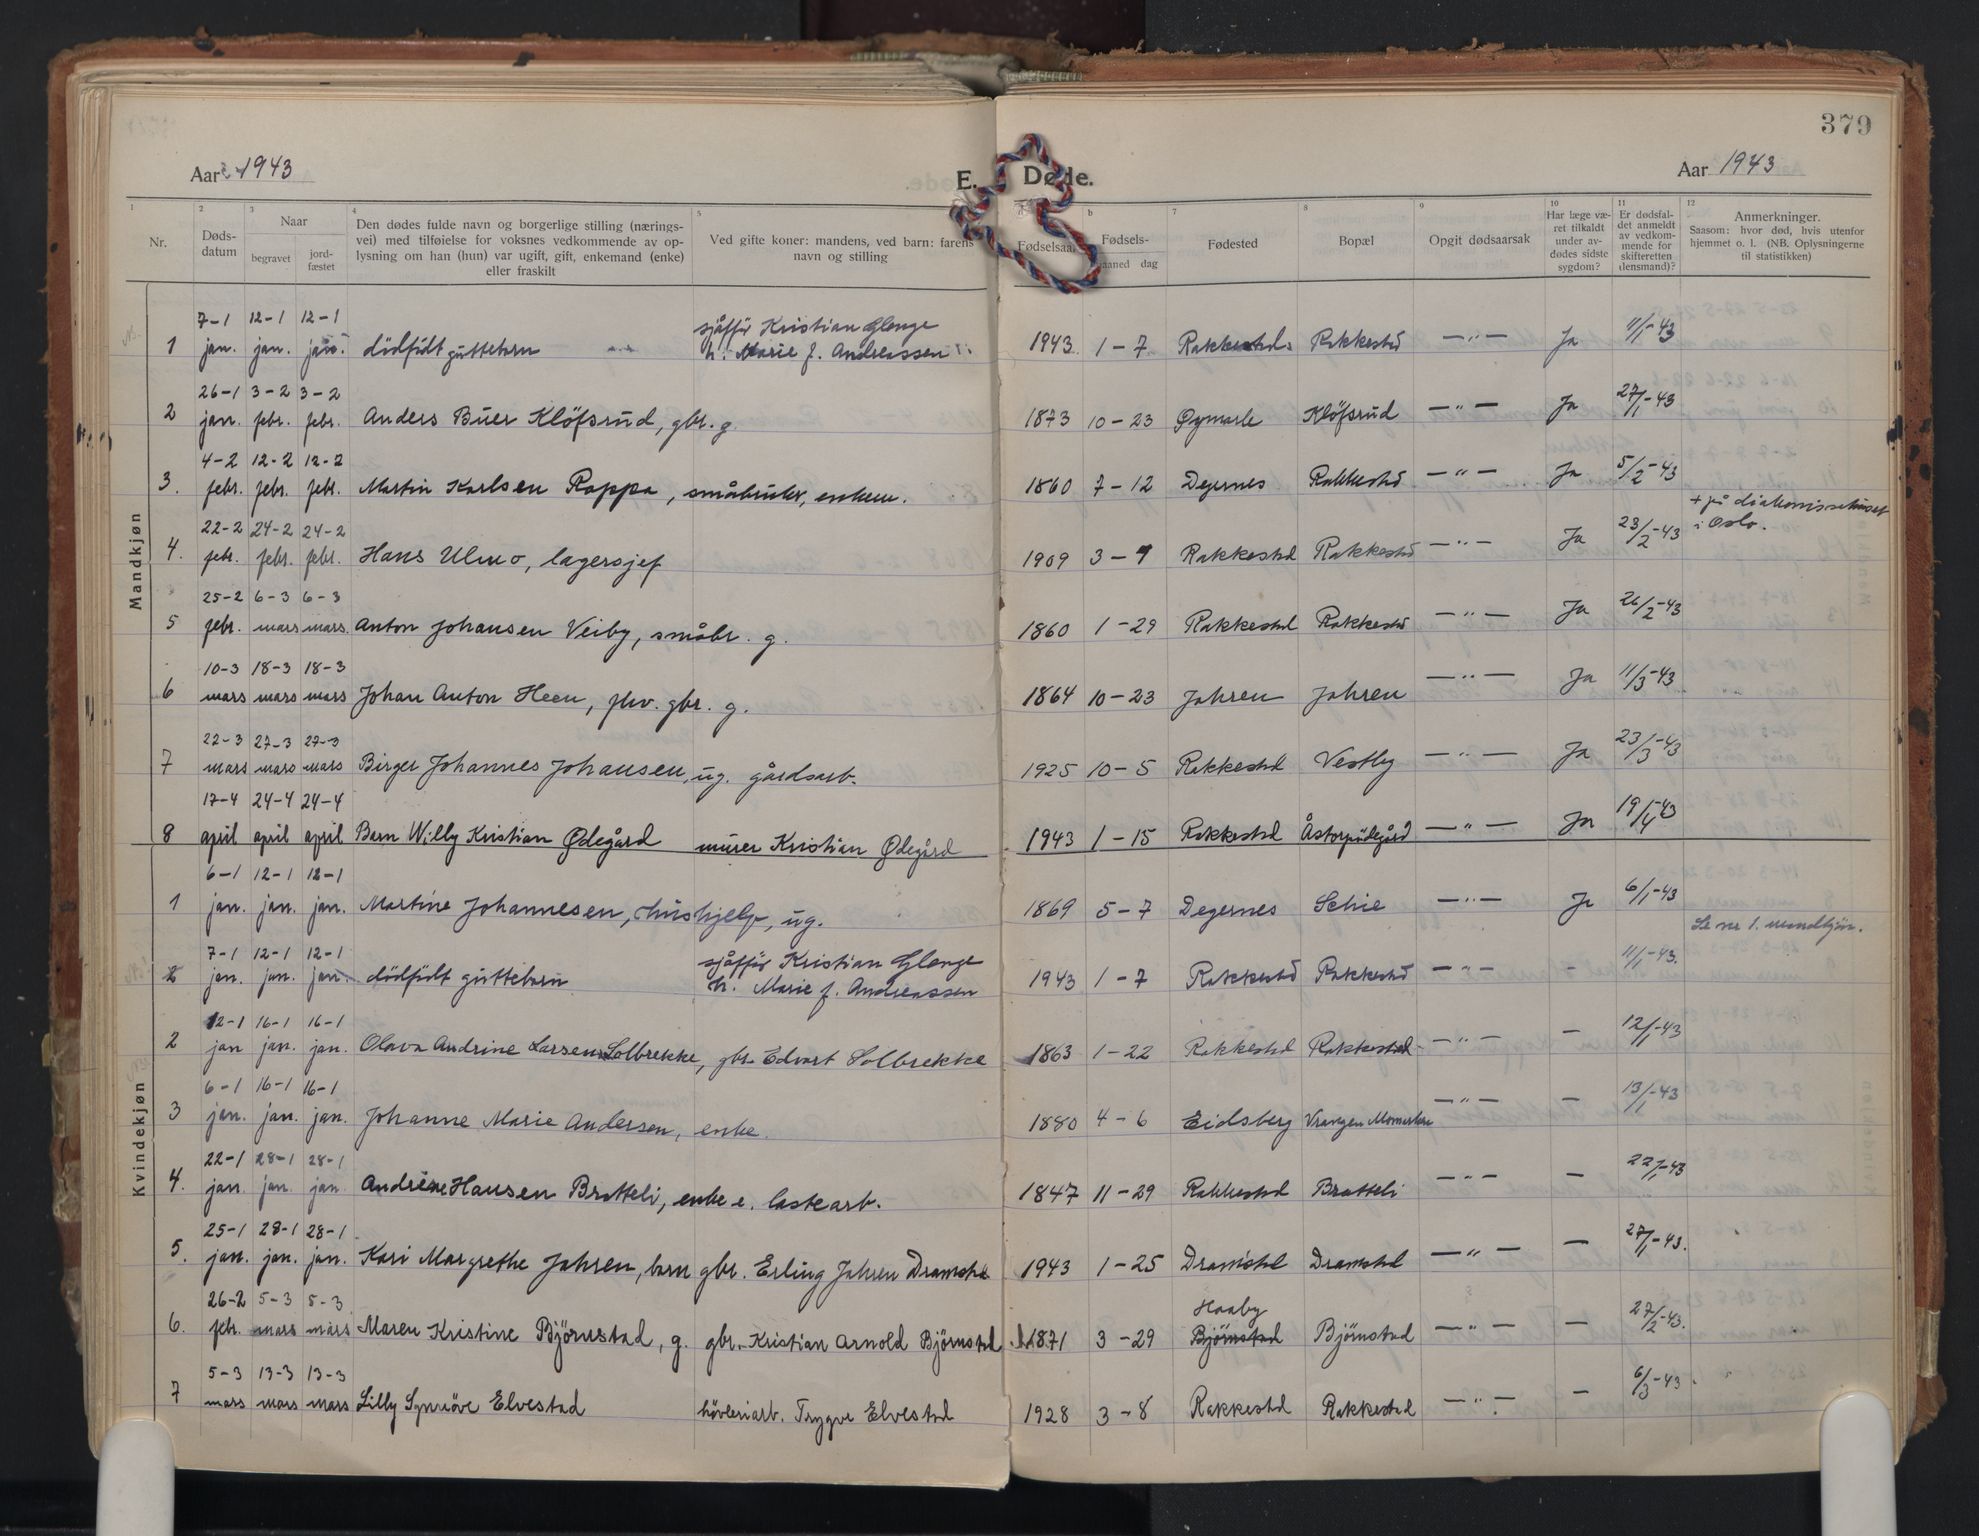 379
Aar 1943
E. Døde.
Aar 1943
1 Nr.
2 Døds-datum
3 Naar
begravet
jord-fæstet
4 Den dødes fulde navn og borgerlige stilling (nærings-
vei) med tilføielse for voksnes vedkommende av op-
lysning om han (hun) var ugift, gift, enkemand (enke)
eller fraskilt
5 Ved gifte koner: mandens, ved barn: farens
navn og stilling
Fødselsaar
b Fødsels-
maaned dag
7 Fødested
8 Bopæl
9 Opgit dødsaarsak
10 Har læge væ-
ret tilkaldt
under av-
dødes sidste
sygdom?
11 Er dødsfal-
det anmeldt
av vedkom-
mende for
skifteretten
(lensmand)?
12 Anmerkninger.
Saasom: hvor død, hvis utenfor
hjemmet o. l. (NB. Oplysningerne
til statistikken)
Mandkjøn
7-1 12-1 12-1 sjåffør Kristian Glenge 11/1-43
1 jan. jan. jan. dödfödt guttebarn h. Marie f. Andreassen 1943 1-7 Rakkestad Rakkestad —"— Ja
26-1 3-2 3-2 27/1-43
2 jan. febr. febr. Anders Buer Klöfsrud, gbr. g. 1873 10-23 Øymark Klöfsrud —"— Ja
4-2 12-2 12-2 5/2-43
3. febr. febr. febr. Martin Karlsen Rappa, småbruker, enkem. 1860 7-12 Degernes Rakkestad —"— Ja
+ på diakonissehuset
i Oslo.
22-2 24-2 24-2 23/2-43
4. febr. febr. febr. Hans Ulmo, lagersjef 1909 3-9 Rakkestad Rakkestad —"— Ja
25-2 6-3 6-3 26/2-43
5 febr. mars mars. Anton Johansen Veiby, småbr. g. 1860 1-29 Rakkestad Rakkestad —"— Ja
10-3 18-3 18-3 11/3-43
6 mars mars mars Johan Anton Heen, fhv. gbr. g. 1864 10-23 Jahren Jahren —"— Ja
22-3 27-3 27-3 23/3-43
7 mars mars mars Birger Johannes Johansen, ug. gårdsarb. 1925 10-5 Rakkestad Vestby —"— Ja
17-4 24-4 24-4 19/4-43
8 april april april Barn Willy Kristian Ødegård murer Kristian Ødegård 1943 1-15 Rakkestad Åstorpødegård —"— Ja
Kvindekjøn
6-1 12-1 12-1 6/1-43
1 jan. jan. jan. Martine Johannesen, hushjelp, ug. 1869 5-7 Degernes Schie —"— Ja
Se nr 1. mandkjön.
7-1 12-1 12-1 sjåffør Kristian Glenge 11/1-43.
2 jan. jan. jan. dödfödt guttebarn h. Marie f. Andreassen 1943 1-7 Rakkestad Rakkestad —"— -
12-1 16-1 16-1 12/1-43
2 jan jan. jan. Olava Andrine Larsen Solbrekke, gbr. Edvart Solbrekke 1863 1-22 Rakkestad Rakkestad —"— —
6-1 16-1 16-1 13/1-43
3 jan. jan. jan. Johanne Marie Andersen, enke. 1880 4-6 Eidsberg Vrangen Momarken —"— —
22-1 28-1 28-1 22/1-43
4. jan. jan. jan. Andrine Hansen Bratteli, enke e. lastearb. 1847 11-29 Rakkestad Bratteli —"— —
25-1 28-1 28-1 27/1-43.
5. jan. jan. jan. Kari Margrethe Jahren, barn gbr. Erling Jahren Dramstad 1943 1-25 Dramstad Dramstad —"— —
26-2 5-3 5-3 Haaby 27/2-43.
6. febr. mars mars Maren Kristine Björnstad, g. gbr. Kristian Arnold Björnstad 1871 3-29 Björnstad Björnstad —"— —
5-3 13-3 13-3 6/3-43
7 mars mars mars Lilly Synnöve Elvestad hövleriarb. Trygve Elvestad 1928 3-8 Rakkestad Rakkestad —"— —